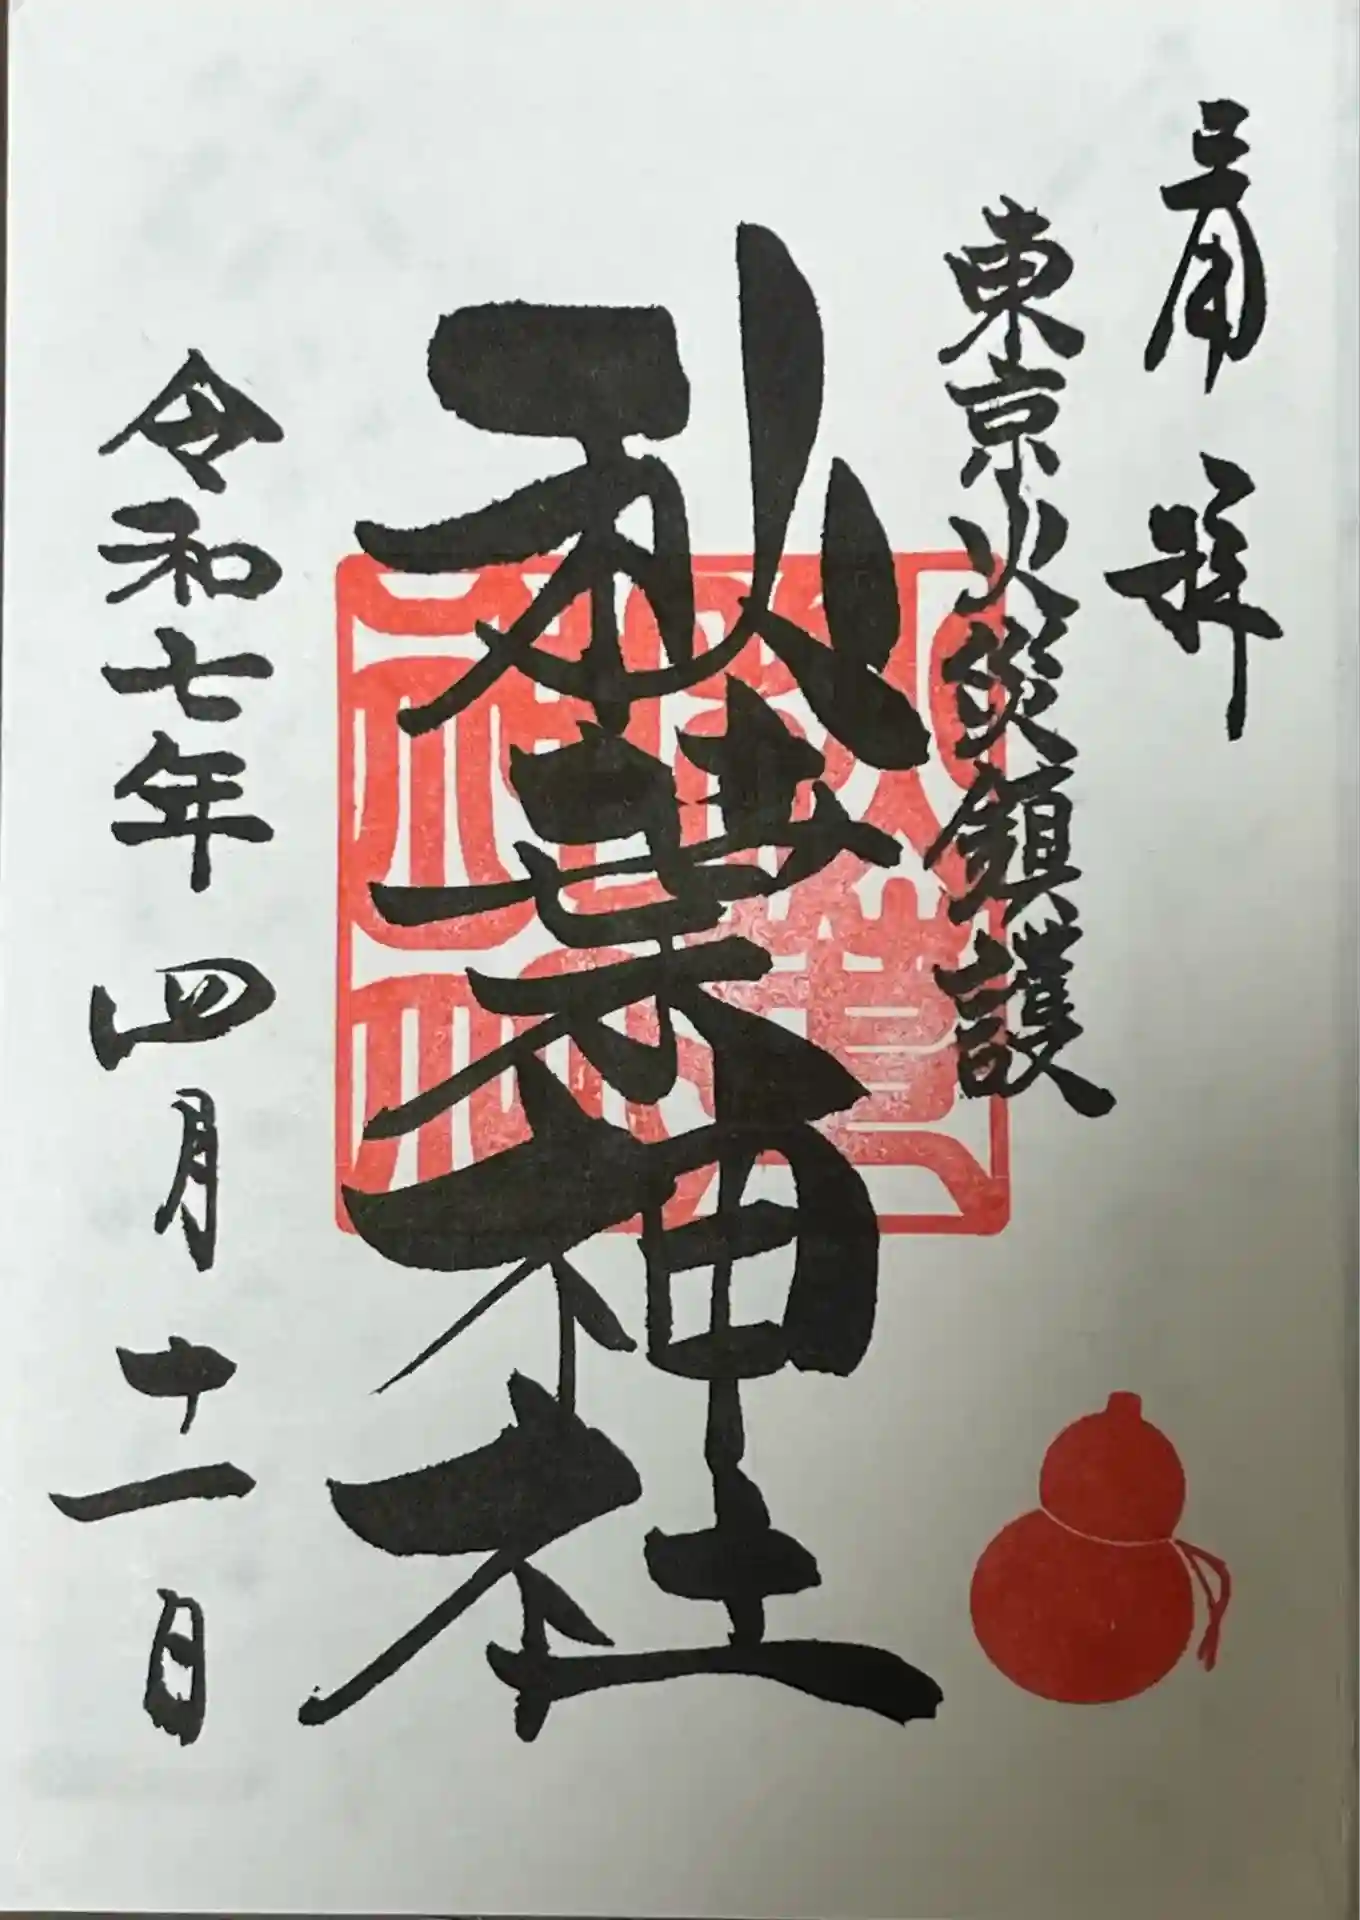 奉拝
東京火災鎮護
秋葉神社
秋葉神社
令和七年四月十一日